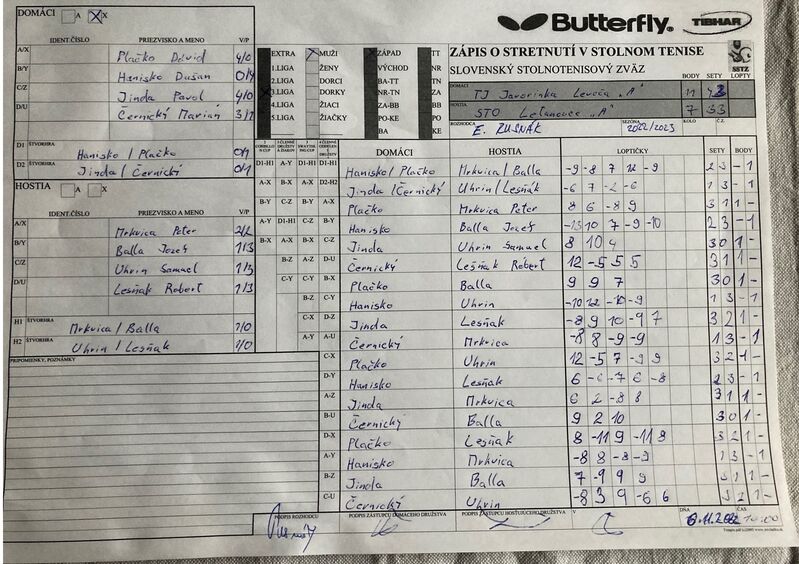 DOMÁCI A X
IDENT.ČÍSLO PRIEZVISKO A MENO V/P
A/X Plačko Dávid 4/0
B/Y Hanisko Dušan 0/4
C/Z Jinda Pavol 4/0
D/U Černický Marián 3/1
D1 ŠTVORHRA Hanisko / Plačko 0/1
D2 ŠTVORHRA Jinda / Černický 0/1
HOSTIA A X
IDENT.ČÍSLO PRIEZVISKO A MENO V/P
A/X Mrkvica Peter 2/2
B/Y Balla Jozef 1/3
C/Z Uhrin Samuel 1/3
D/U Lesňak Robert 1/3
H1 ŠTVORHRA Mrkvica / Balla 1/0
H2 ŠTVORHRA Uhrin / Lesňak 1/0
PRIPOMIENKY, POZNÁMKY
Butterfly TIBHAR
EXTRA MUŽI ZÁPAD TT
1.LIGA ŽENY VÝCHOD NR
2.LIGA DORCI BA-TT TN
3.LIGA DORKY NR-TN ZA
4.LIGA ŽIACI ZA-BB BB
5.LIGA ŽIAČKY PO-KE PO
BA KE
ZÁPIS O STRETNUTÍ V STOLNOM TENISE
SLOVENSKÝ STOLNOTENISOVÝ ZVÄZ
SSTZ
BODY SETY LOPTY
DOMÁCI TJ Javorinka Levoča "A" 11
HOSTIA STO Letanovce "A" 7 33
ROZHODCA E. RUSNÁK SEZÓNA 2022/2023 KOLO Č.Z.
DOMÁCI HOSTIA LOPTIČKY SETY BODY
D1-H1 A-Y D1-H1 D1-H1 Hanisko / Plačko Mrkvica / Balla -9 -8 7 12 -9 2 3 - 1
A-X B-X A-X D2-H2 Jinda / Černický Uhrin / Lesňak -6 7 -2 -6 1 3 - 1
B-Y C-Z B-Y A-X Plačko Mrkvica Peter 8 6 -8 9 3 1 1 -
A-Y D1-H1 C-Z B-Y Hanisko Balla Jozef -13 10 7 -9 -10 2 3 - 1
B-X A-X B-X C-Z Jinda Uhrin Samuel 8 10 4 3 0 1 -
B-Z A-Z D-U Černický Lesňak Robert 12 -5 5 5 3 1 1 -
C-Y C-Y B-X Plačko Balla 9 9 7 3 0 1 -
B-Z C-Y Hanisko Uhrin -10 12 -10 -9 1 3 - 1
C-X D-Z Jinda Lesňak -8 9 10 -9 7 3 2 1 -
A-Y A-U Černický Mrkvica -8 8 -9 -9 1 3 - 1
C-X Plačko Uhrin 12 -5 7 -9 9 3 2 1 -
D-Y Hanisko Lesňak 6 -6 -7 6 -8 2 3 - 1
A-Z Jinda Mrkvica 6 2 -8 8 3 1 1 -
B-U Černický Balla 9 2 10 3 0 1 -
D-X Plačko Lesňak 8 -11 9 -11 8 3 2 1 -
A-Y Hanisko Mrkvica -8 8 -8 -9 1 3 - 1
B-Z Jinda Balla 7 -9 9 9 3 1 1 -
C-U Černický Uhrin -8 3 9 -6 6 3 2 1 -
PODPIS ROZHODCU PODPIS ZÁSTUPCU DOMÁCEHO DRUŽSTVA PODPIS ZÁSTUPCU HOSŤUJÚCEHO DRUŽSTVA V DŇA ČAS